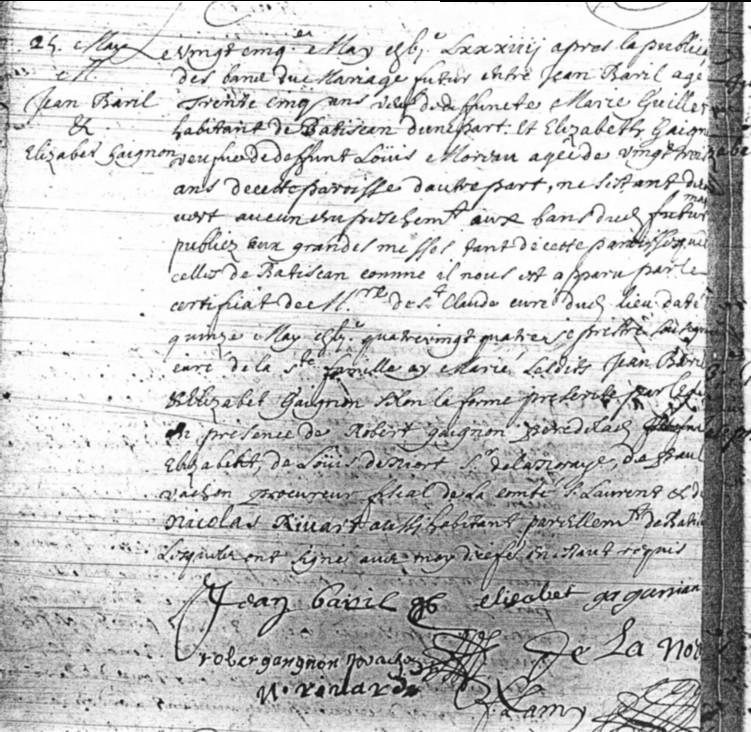 25. May
et
Jean Baril
&
Elizabet Gaignon
Le vingt cinq.e May gbj.c Lxxxiiij apres la public
des bans du Mariage futur entre Jean Baril agé
Trente cinq ans veuf de deffuncte Marie Guillet
habitant de Batiscan d'une part. Et Elizabeth Gaign
veufue de deffunt Louis Moreau agée de vingt trois
ans de cette paroisse d'autre part, ne s'etant
vert aucun empeschem.t aux bans dud futur
mar
publiez aux grandes messes tant de cette paroisse que
celle de Batiscan comme il nous est apparu par le
certificat de M.re de S.t Claude curé dud lieu daté
quinze May quatre vingt quatre Je prestre soussigné
curé de la S.te famille ay Marié lesdits Jean Baril
& Elizabet Gaignon selon la forme prescrite par
en presence de Robert gaignon Pere de lad
Elizabeth, de Louis de Niort S.r de la Noraye, de Paul
Vachon procureur fiscal de la comté S. Laurent & de
Nicolas Rivart aussi habitant pareillem.t de Batis
Lesquels ont signé avec moy de ce enquis
Jean baril elisabet gagunian
rober gangnon Pvachon De La Nor
N. rivard
F. Lamy